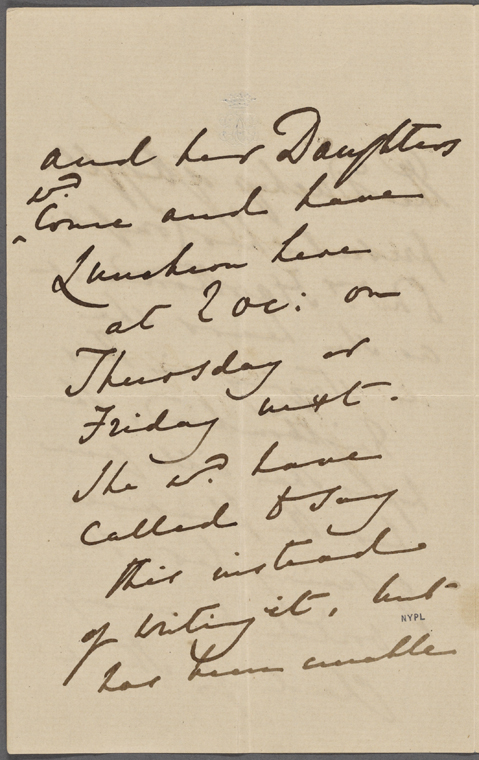 and her Daughters
wd.
Come and have
Luncheon here
at 2 oc: on
Thursday or
Friday next.
She wd. have
called to say
this instead
of writing it, but
NYPL
has been unable